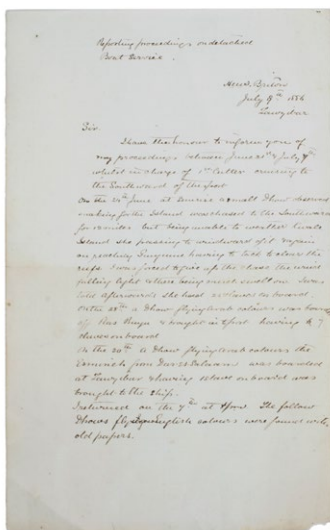 Reporting proceedings on detached
Boat Service.
H.M.S. Briton
July 9th 1884
Sir
I have the honour to inform you of
my proceedings between June 21st & July 7th
whilst in charge of 1st Cutter cruising to
the Southward of the
On the 24th June at sunrise a small Dhow observed
making for the Island was chased to the Southward
for miles but being unable to weather
Island she passing to windward of it & again
on having to tack to clear the
reefs I was forced to give up the chase the wind
falling light & there being much swell on. I was
told afterwards she had slaves on board.
On the 28th a Dhow flying Arab colours was boarded
off & brought in having 7
slaves on board
On the 29th a Dhow flying Arab colours the
from Dar es Salaam was boarded
at & having slaves on board was
brought to the ship.
I returned on the 7th at The follow
Dhows flying English colours were found with
old papers.